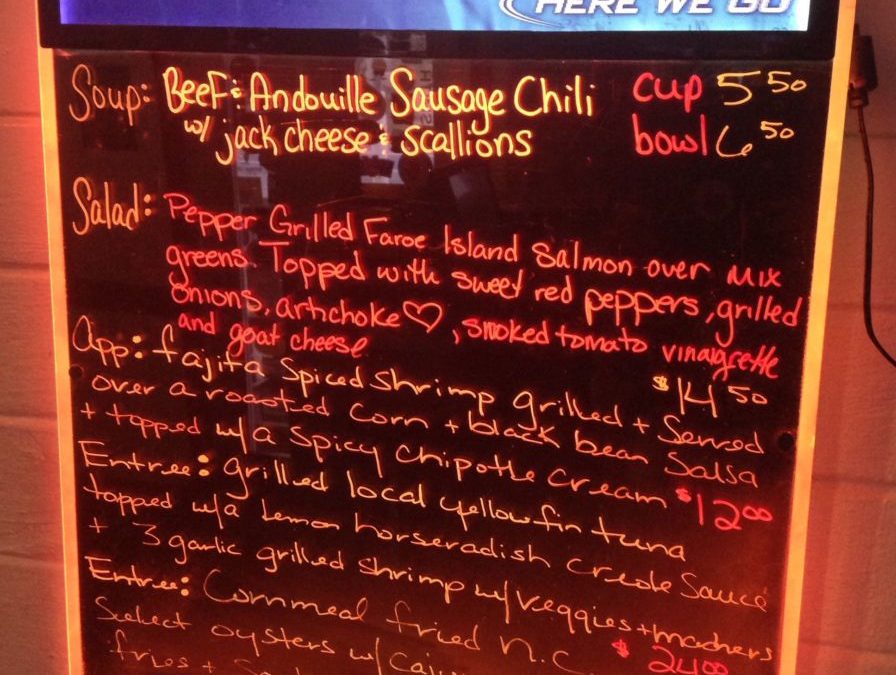 HERE WE GO
Soup: Beef & Andouille Sausage Chili cup 5 50
w/ jack cheese & scallions bowl 6 50
Salad: Pepper Grilled Faroe Island Salmon over mix
greens. Topped with sweet red peppers, grilled
onions, artichoke ♡, smoked tomato vinaigrette
and goat cheese $14 50
App: fajita Spiced shrimp grilled + Served
over a roasted corn + black bean Salsa
+ topped w/ a spicy chipotle cream $12 00
Entree: grilled local yellowfin tuna
topped w/a Lemon horseradish creole Sauce
+ 3 garlic grilled shrimp w/ veggies + mashers
$24 00
Entree: Cornmeal fried N.C.
Select oysters w/
fries +